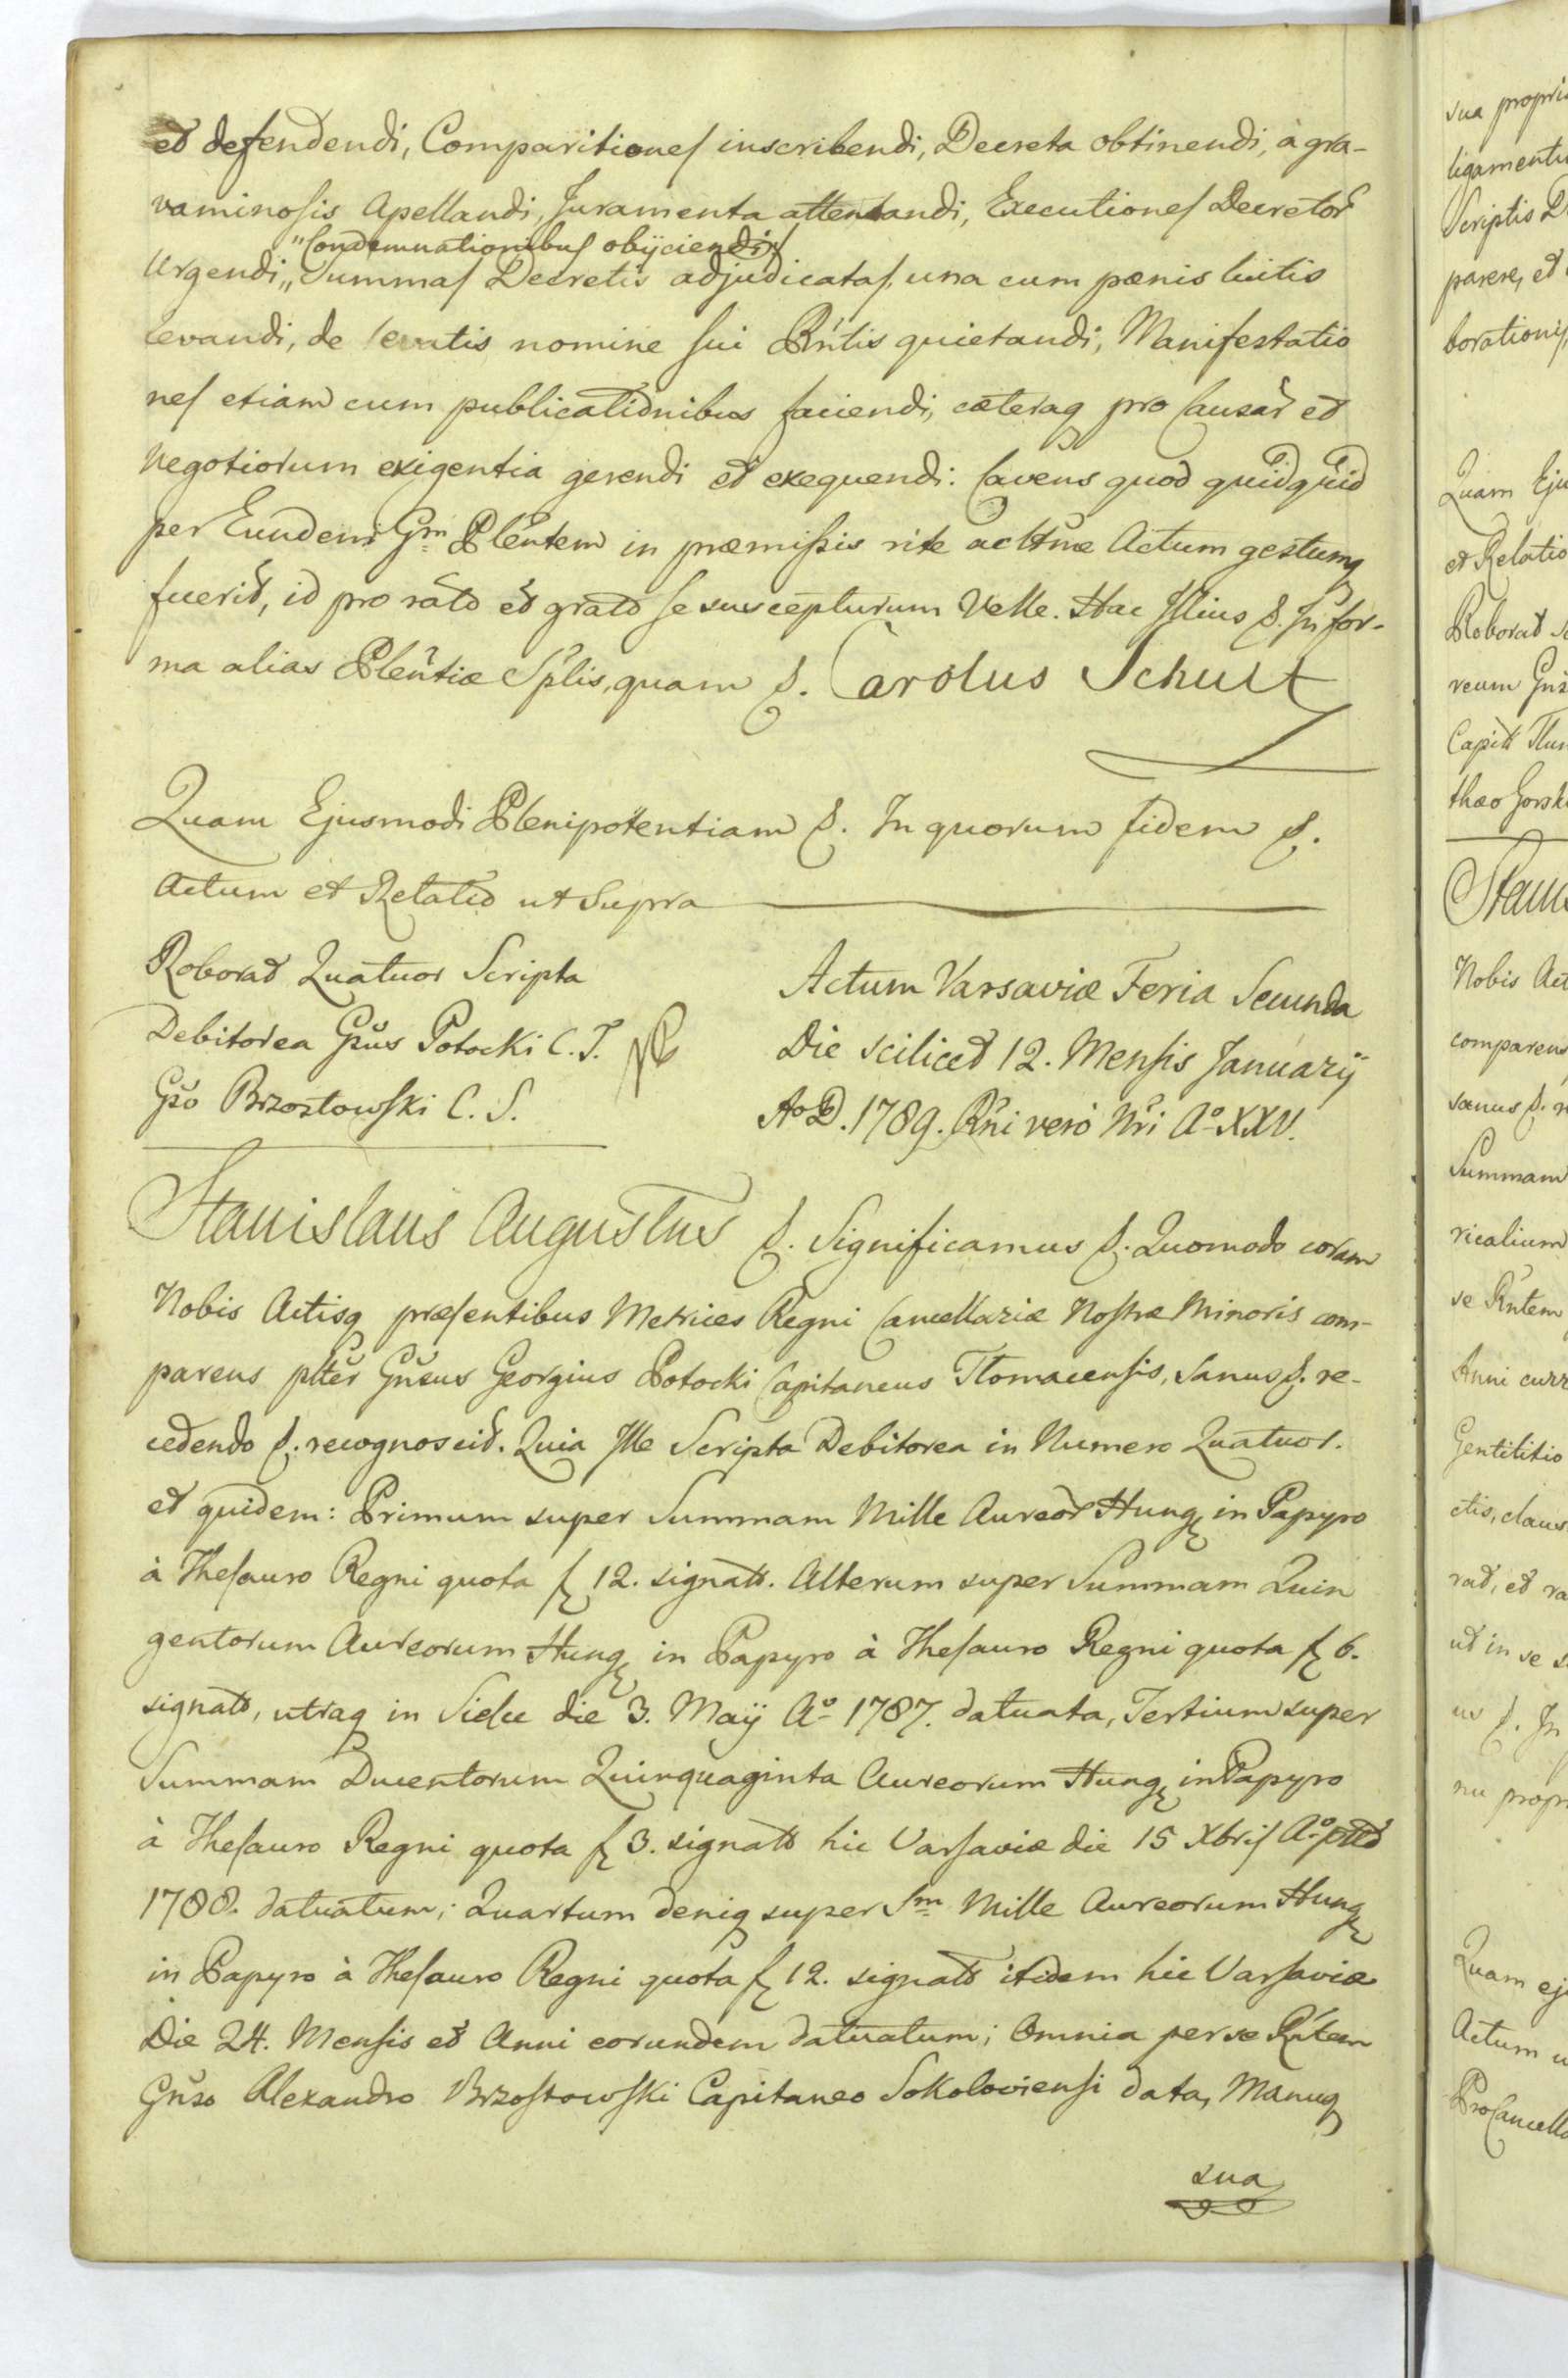 et defendendi, Comparitiones inscribendi, Decreta obtinendi, à gra-
vaminosis Apellandi, Juramenta attentandi, Executiones Decretor
"Condemnationibus obijciendi,
Urgendi,,, Summas Decretis adjudicatas, una cum pænis luitis
levandi, de levatis nomine sui Rntis quietandi, Manifestatio
nes etiam cum publicationibus faciendi, cæteraq pro Causar et
Negotiorum exigentia gerendi et exequendi: Cavens quod quidquid
per Eundem Gm Plentem in præmissis rite ac lttme Actum gestumq
fuerit, id pro rato et grato se suscepturum Velle. Hac Illius &. In for-
ma alias Plentiæ Splis, quam &. Carolus Schult
Quam Ejusmodi Plenipotentiam &. In quorum fidem &.
Actum et Relatio ut Supra
Roborat Quatuor Scripta
Debitorea Gsus Potocki C. T.
Gso Brzostowski C. S.
Actum Varsaviæ Feria Secunda
Die scilicet 12. Mensis Januarij
Ao D. 1789. Rni vero Nri Ao XXV.
Stanislaus Augustus &. Significamus &. Quomodo coram
Nobis Actisq præsentibus Metrices Regni Cancellariæ Nostræ Minoris com-
parens plter Gnsus Georgius Potocki Capitaneus Tlomacensis, Sanus &. re-
cedendo &. recognoscit. Quia Ille Scripta Debitorea in Numero Quatuor.
et quidem: Primum super Summam Mille Aureor Hungq in Papyro
à Thesauro Regni quota f 12. signatt. Alterum super Summam Quin
gentorum Aureorum Hungq in Papyro à Thesauro Regni quota f 6.
signatt, utraq in Sielce die 3. Maij Ao 1787. datuata, Tertium super
Summam Ducentorum Quinquaginta Aureorum Hungq in Papyro
à Thesauro Regni quota f 3. signatt hic Varsaviæ die 15 Xbris Ao pttto
1788. datuatum; Quartum deniq super Sm Mille Aureorum Hungq
in Papyro à Thesauro Regni quota f 12. signatt itidem hic Varsaviæ
Die 24. Mensis et Anni eorundem datuatum; Omnia per se Rntem
Gnso Alexandro Brzostowski Capitaneo Sokoloviensi data, Manuq
sua
sua propri
ligamentu
Scriptis D
parere, et
borationis,
Quam Eju
et Relatio
Roborat
reum Gns
Capitt Tlum
thæo Gorsk
Stanis
Nobis Act
comparens
sanus &. r
Summam
ricalium
se Rntem
Anni curr
Gentilitio
ctis, claus
rat, et ra
ut in se s
us &. In
nu propr
Quam eju
Actum u
ProCancella